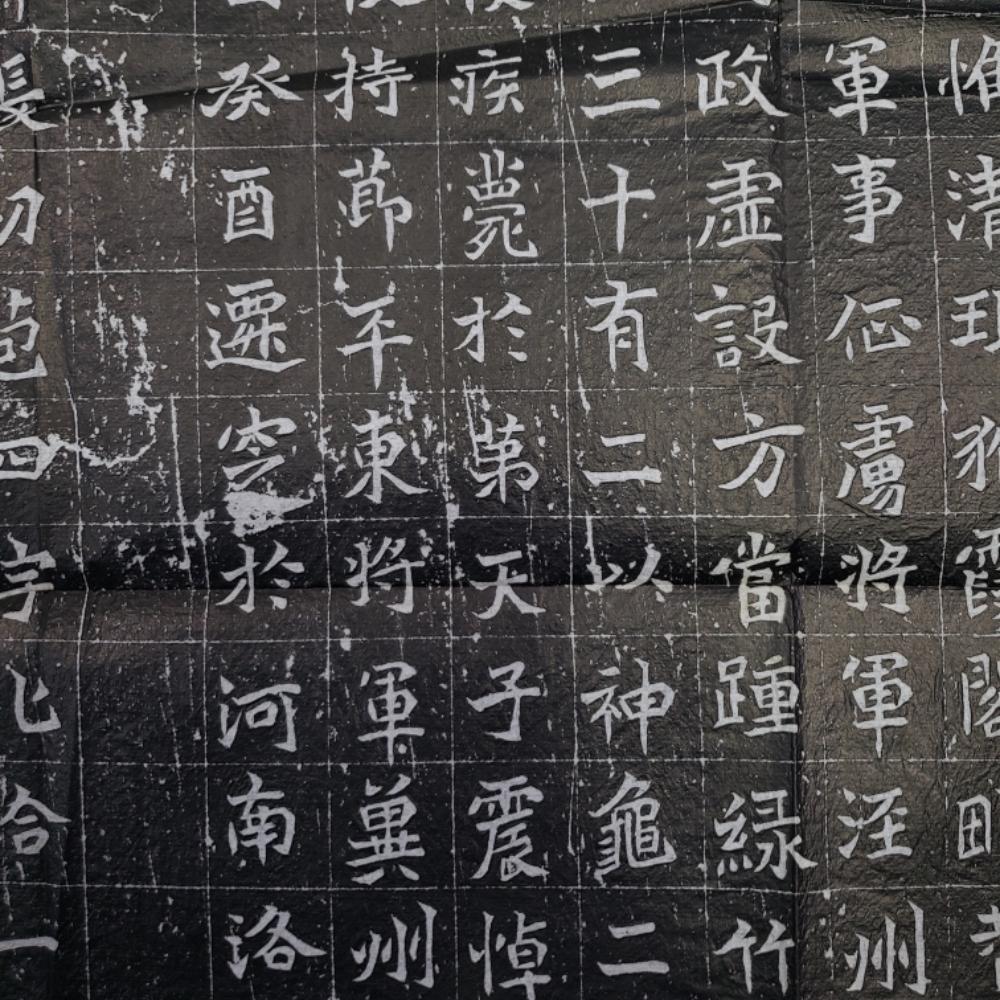 惟清
軍事征虜將軍涇州
政虛設方當踵緑竹
三十有二以神龜二
疾薨於第天子震悼
持節平東將軍冀州
癸酉遷窆於河南洛
四
一